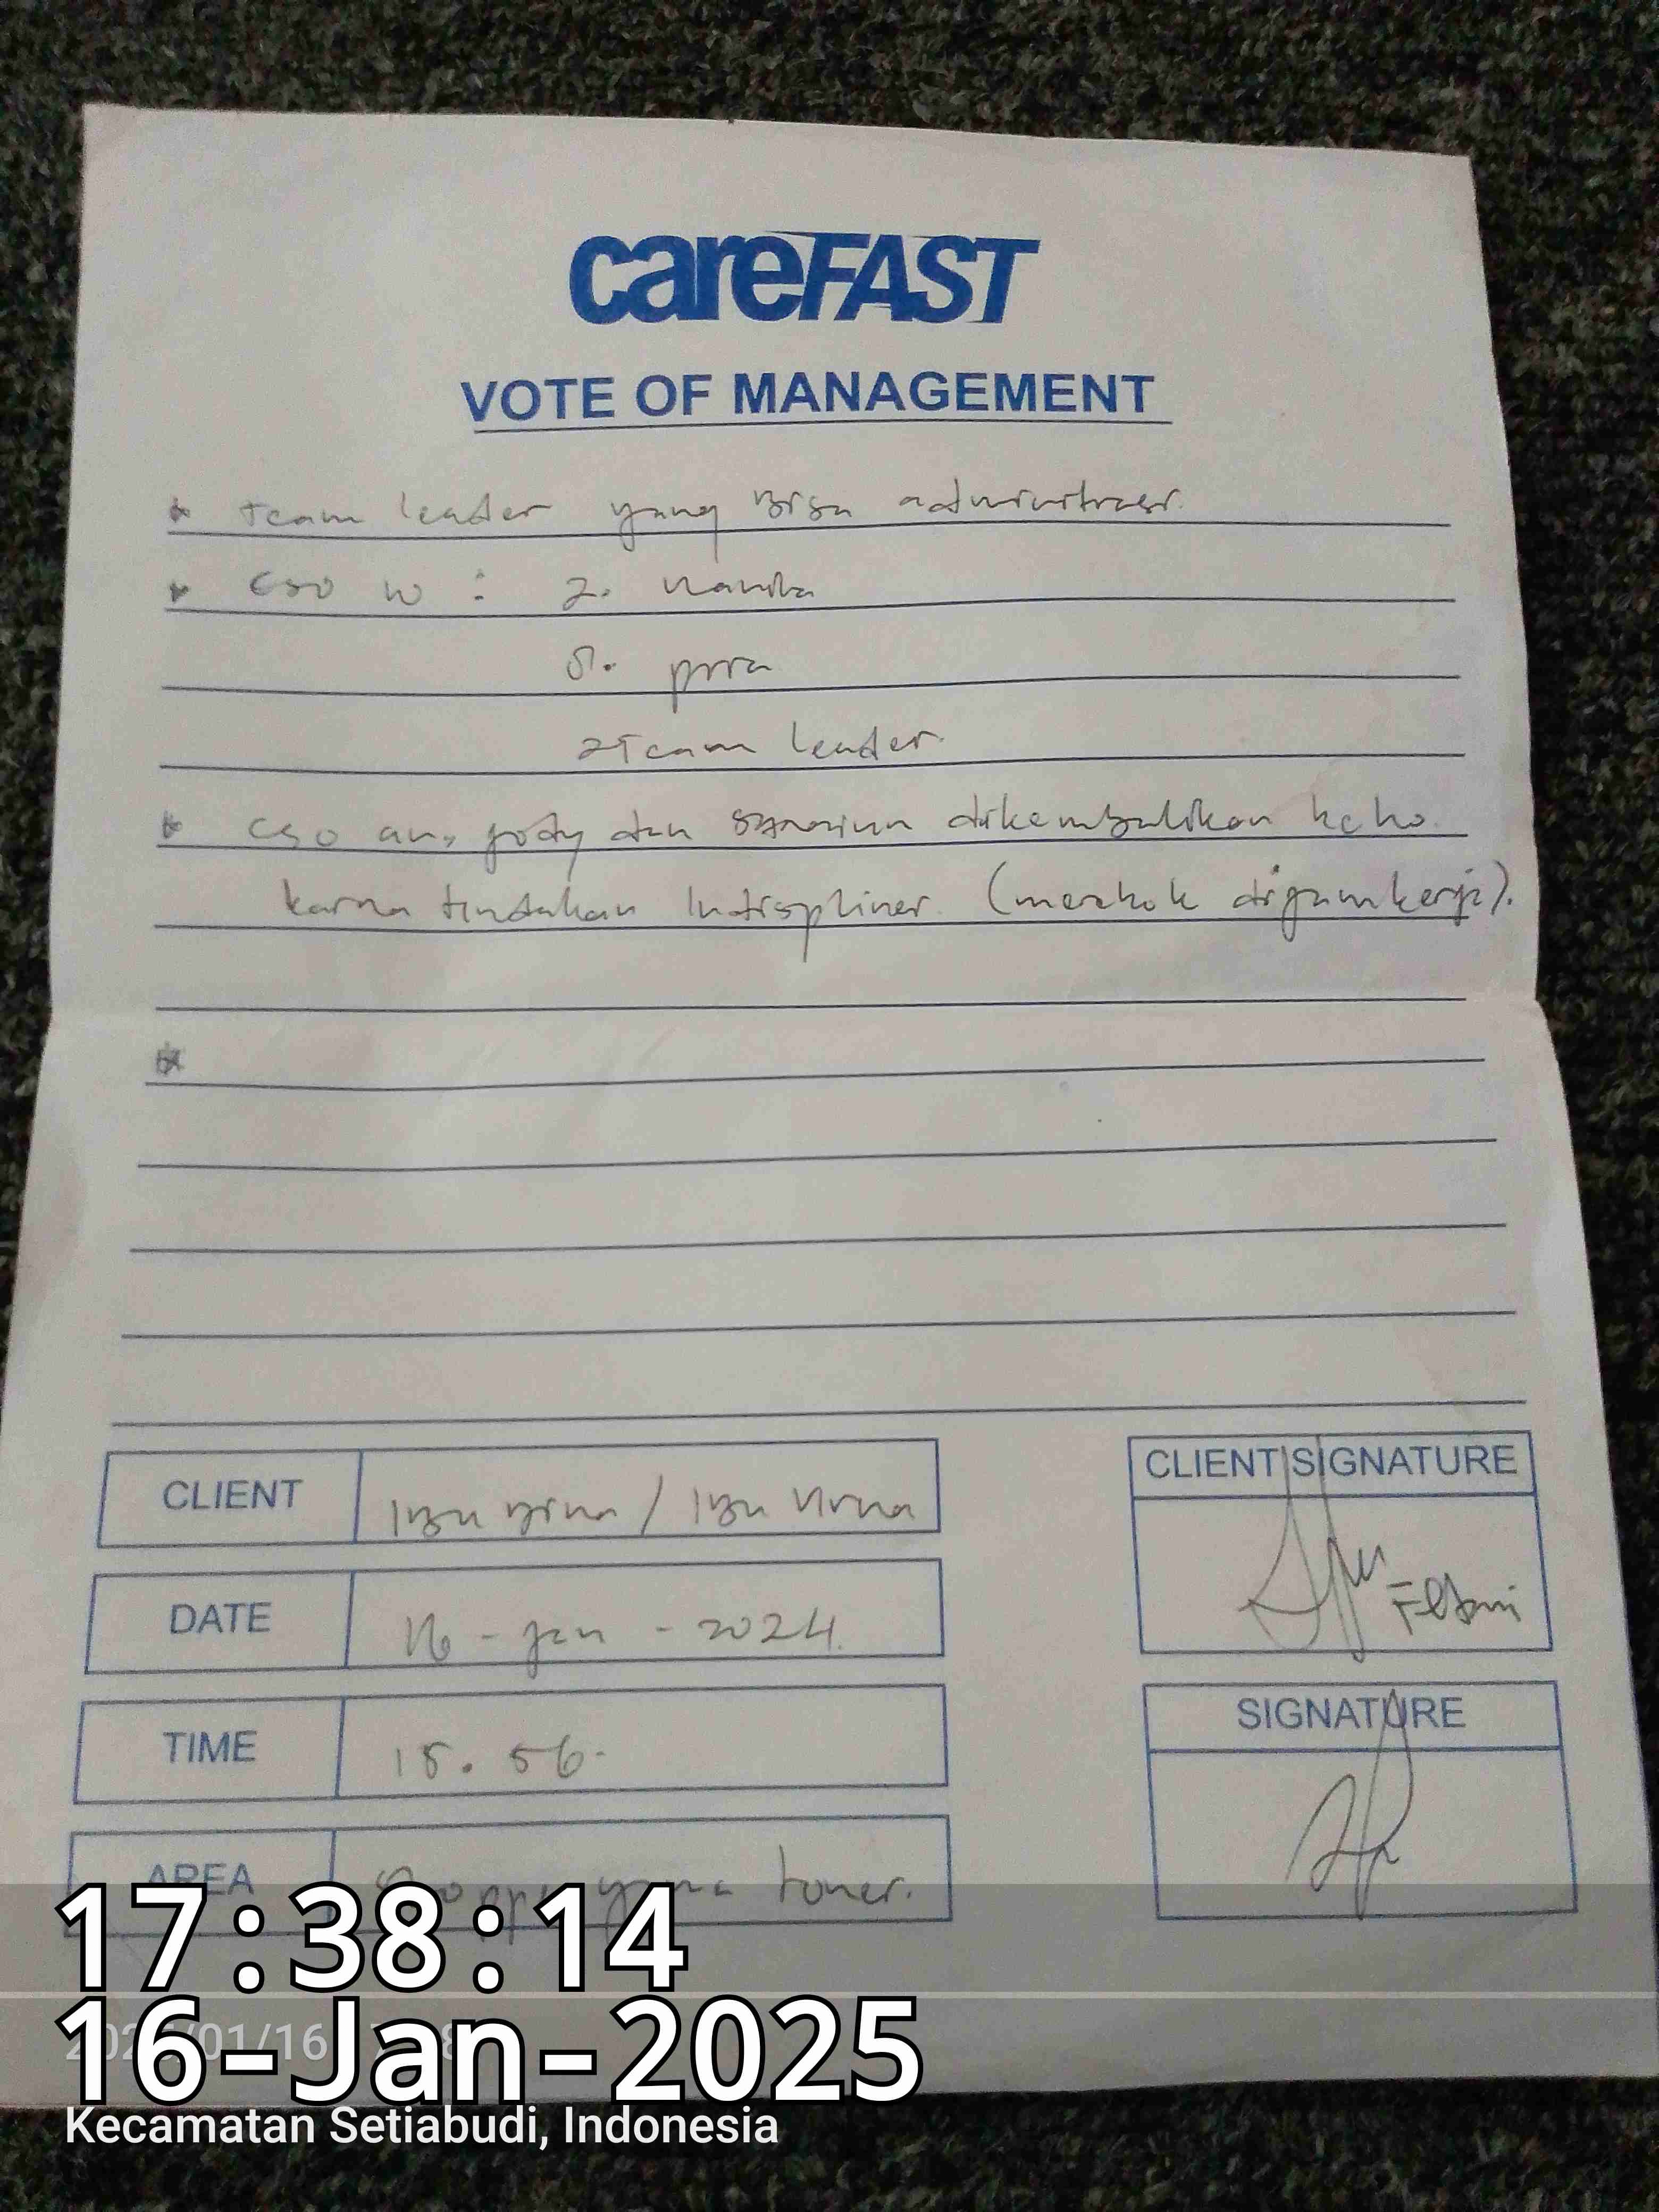 careFAST
VOTE OF MANAGEMENT
* team leader yang Bisa administrasi.
* CSO W : 2. wanita
5. pria
2 Team leader
* CSO an, gody dan dikembalikan ke ho
karna tindakan Indispliner. (merokok dijam kerja).
*
CLIENT
Ibu / Ibu
DATE
16 - Jan - 2024.
TIME
15. 56.
AREA
tower.
CLIENT SIGNATURE
SIGNATURE
17:38:14
16-Jan-2025
Kecamatan Setiabudi, Indonesia